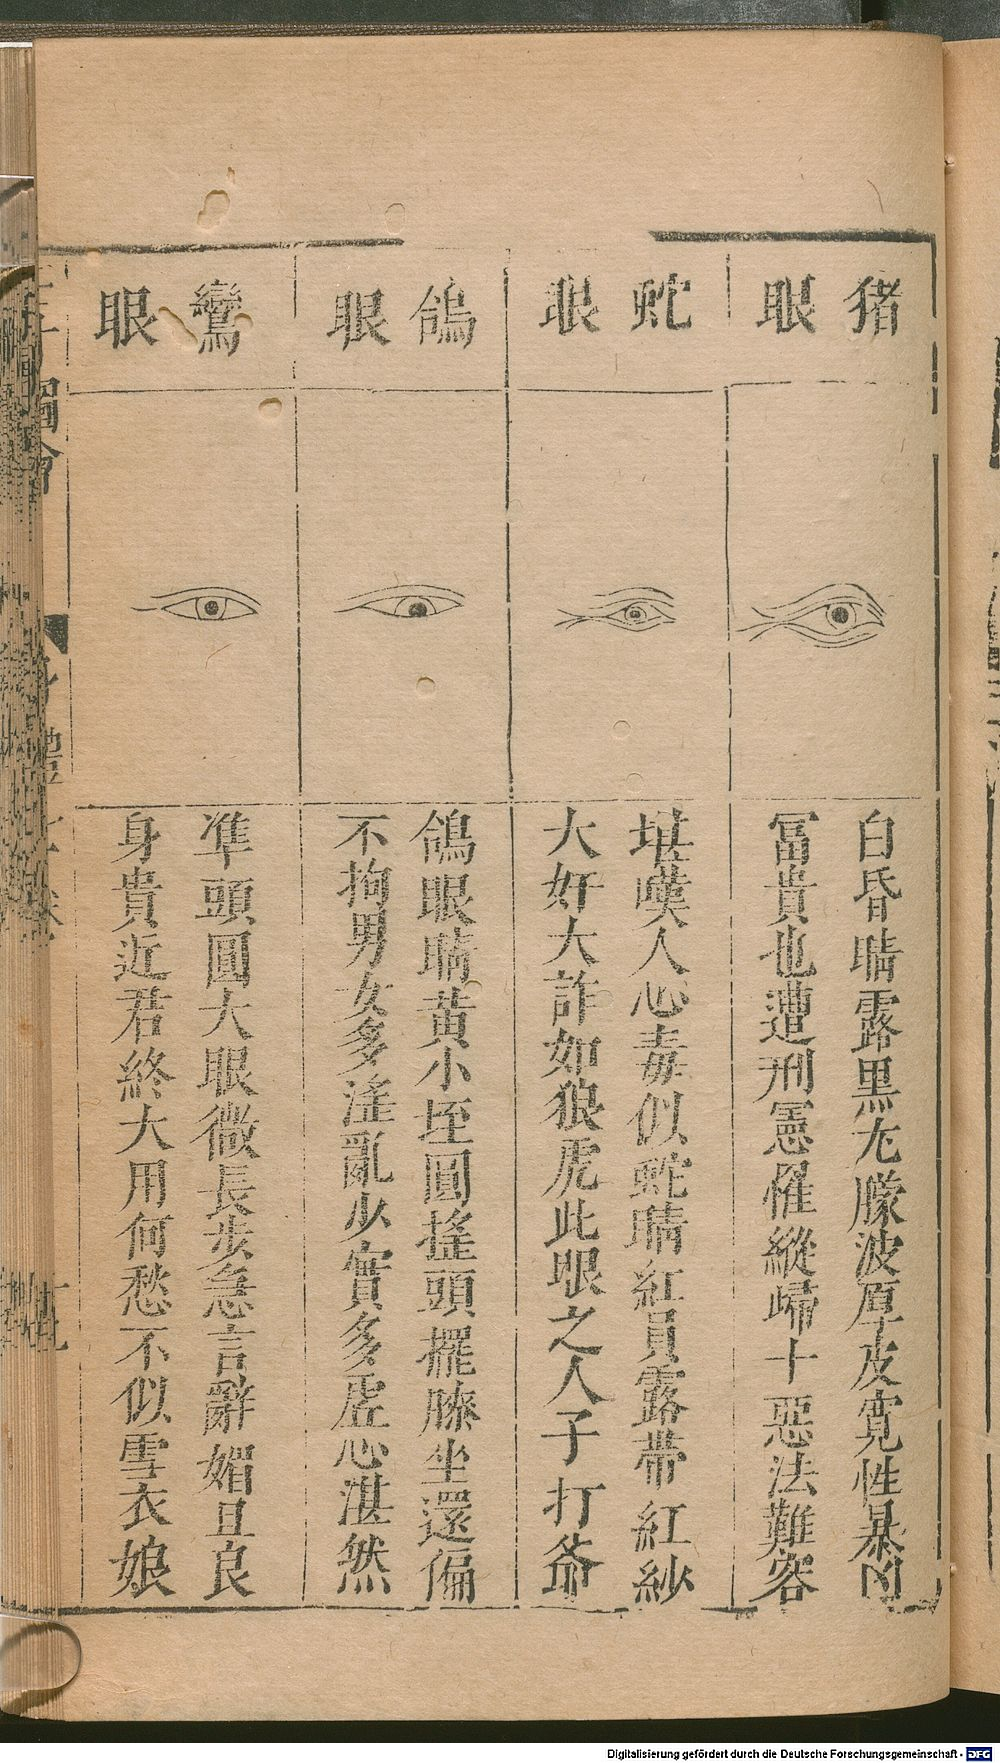 猪眼
白昏睛露黒尢朦波厚皮寛性暴凶
冨貴也遭刑憲罹縱歸十惡法難容
蛇眼
堪嘆人心毒似蛇睛紅員露帶紅紗
大奸大詐如狼虎此眼之人子打爺
鴿眼
鴿眼睛黄小垤圓搖頭擺膝坐還偏
不拘男女多淫亂少實多虛心湛然
鸞眼
準頭圓大眼微長步急言辭媚且良
身貴近君終大用何愁不似雪衣娘
Digitalisierung gefördert durch die Deutsche Forschungsgemeinschaft - DFG